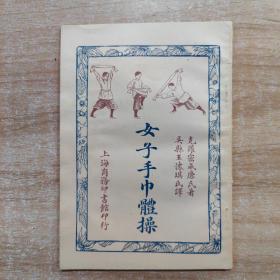 克羅密威廉氏著
吳縣王懷琪氏譯
女子手巾體操
上海商務印書館印行